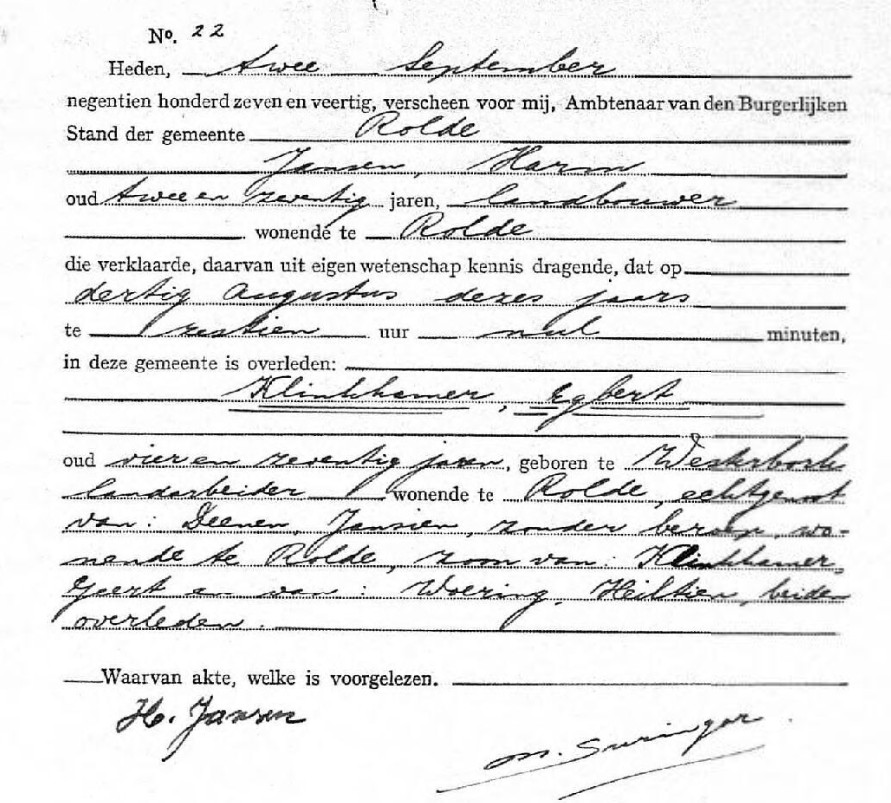 No. 22
Heden, twee September
negentien honderd zeven en veertig, verscheen voor mij, Ambtenaar van den Burgerlijken
Stand der gemeente Rolde
Jansen, Harm
oud twee en zeventig jaren, landbouwer
wonende te Rolde
die verklaarde, daarvan uit eigen wetenschap kennis dragende, dat op
dertig Augustus dezes jaars
te zestien uur nul minuten,
in deze gemeente is overleden:
Klinkhamer, Egbert
oud vier en zeventig jaren, geboren te Westerbork
landarbeider wonende te Rolde, echtgenoot
van: Deenen, Jansien, zonder beroep, wo-
nende te Rolde, zoon van: Klinkhamer,
Geert en van: Woering, Heiltien, beiden
overleden.
Waarvan akte, welke is voorgelezen.
H. Jansen
M. Suringar